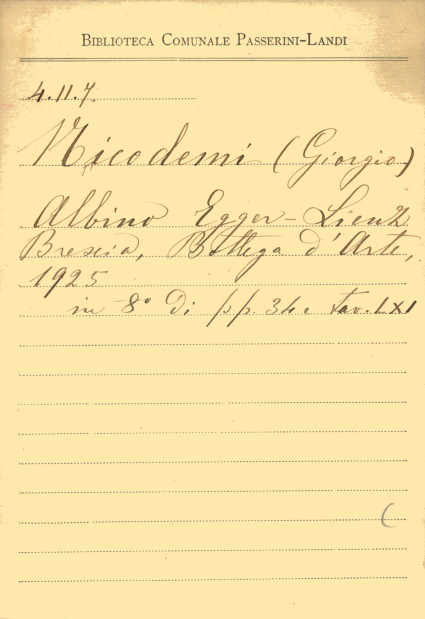 BIBLIOTECA COMUNALE PASSERINI-LANDI
4.11.7.
Nicodemi (Giorgio)
Albino Egger-Lienz
Brescia, Bottega d'Arte,
1925
in 8° di pp. 34 e tav. LXI